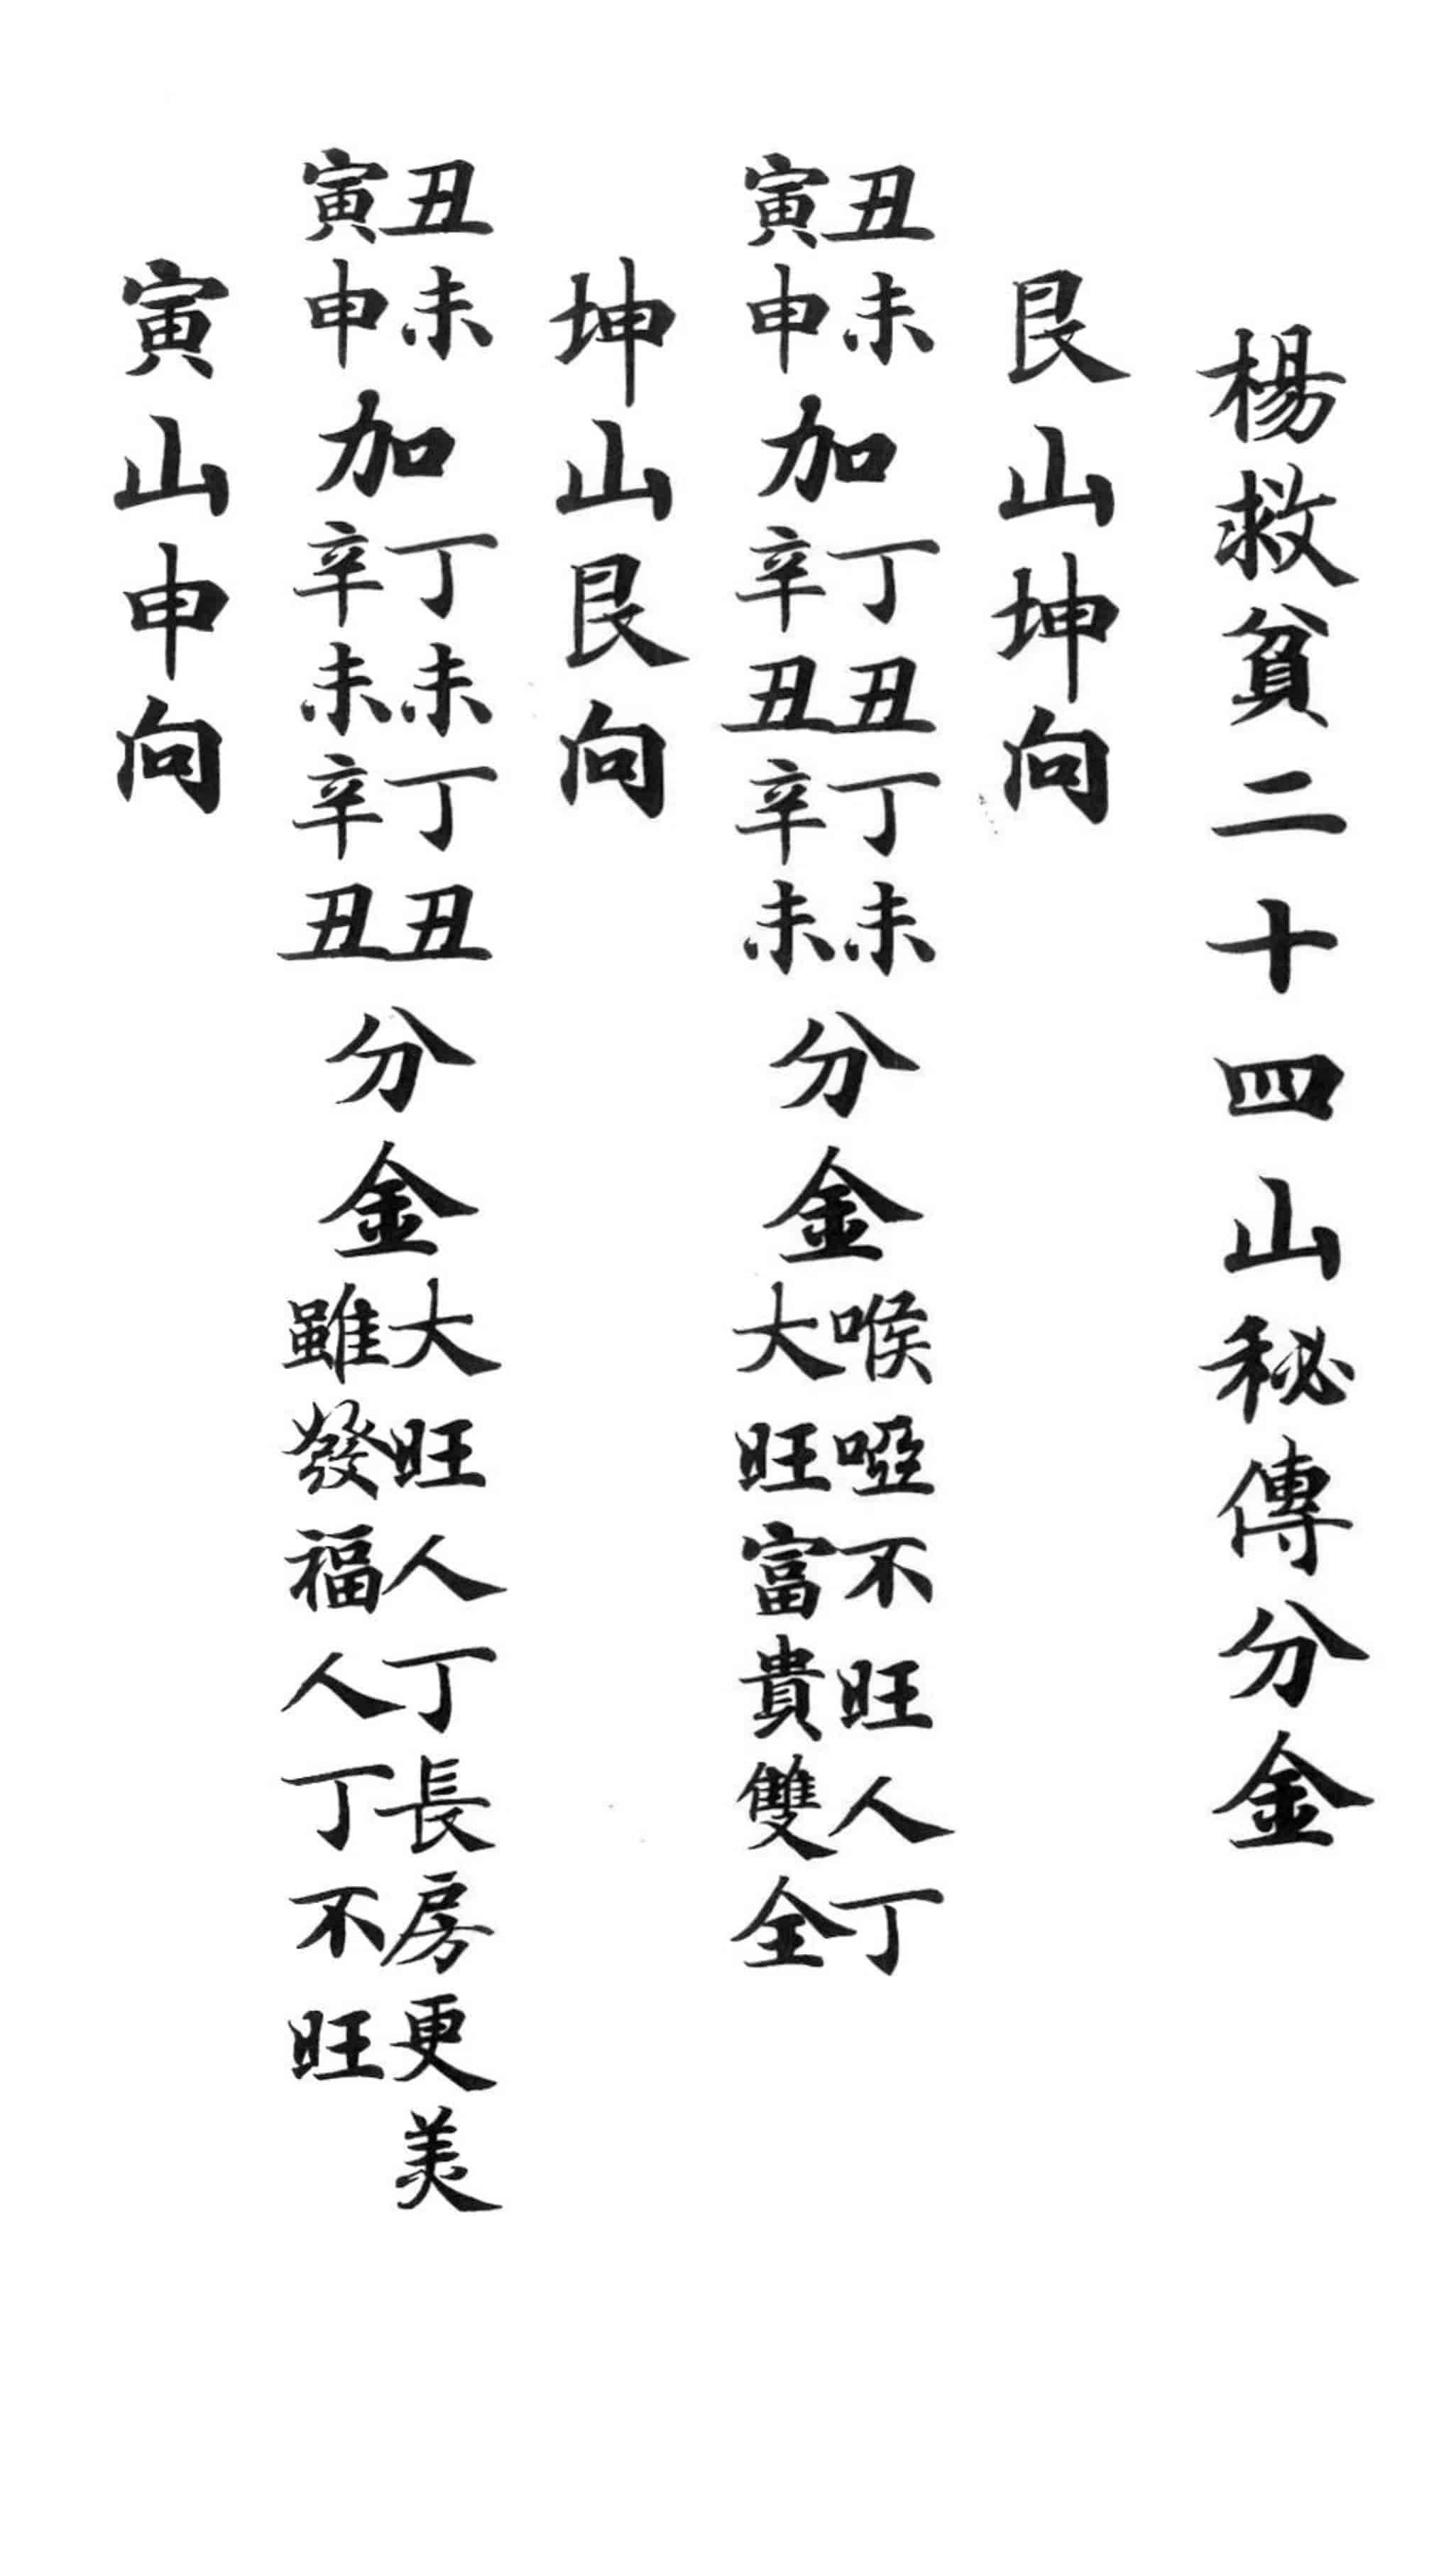 楊救貧二十四山秘傳分金
艮山坤向
丑未加丁丑丁未分金喉啞不旺人丁
寅申加辛丑辛未分金大旺富貴雙全
坤山艮向
丑未加丁未丁丑分金大旺人丁長房更美
寅申加辛未辛丑分金雖發福人丁不旺
寅山申向